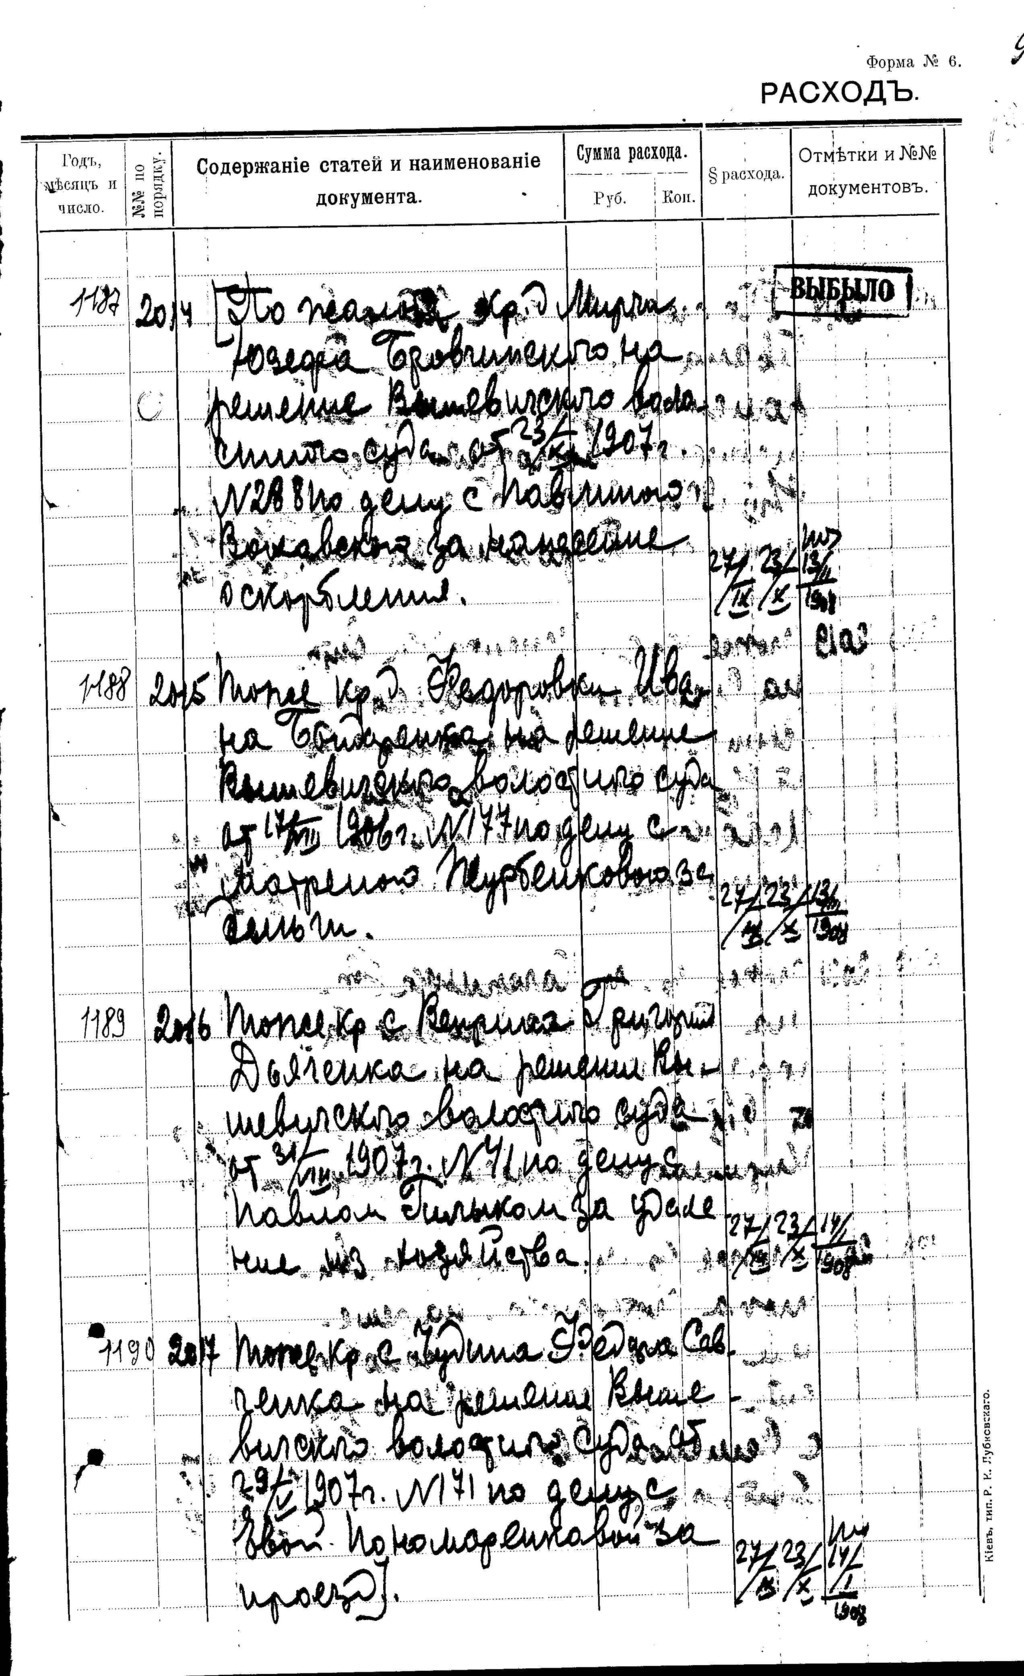 Форма № 6.
РАСХОДЪ.
Годъ, мѣсяцъ и число.
№№ по порядку.
Содержаніе статей и наименованіе документа.
Сумма расхода.
Руб. Коп.
§ расхода.
Отмѣтки и №№ документовъ.
ВЫБЫЛО
1187 2014 [По жалобе кр. д Мирча
Юзефа Бровчинского на
решение Вышевичского воло-
стного суда от 23/XI 1907 г.
N 288 по делу с Павлиною
за нанесение
оскорбления.
27/IX 23/X 13/II 1908
1188 2015 Тоже кр д. Федоровки Ива-
на Бондаренка на решение
Вышевичского волостного суда
от 17/VIII 1906 г. N 177 по делу с
Матреною Журбенковою за
деньги.
27/IX 23/X 13/II 1908
1189 2016 Тоже кр с Вепринa Григория
Дьяченка на решении Вы-
шевичского волостного суда
от 31/VII 1907 г. N 41 по делу с
Павлом Гилыком за удале
ние из хозяйства.
27/IX 23/X 14/I 1908
1190 2017 Тоже кр с Чудина Федора Сав-
ченка на решение Выше-
вичского волостного суда от
29/V 1907 г. N 171 по делу с
Евой Пономаренковой за
проезд].
27/IX 23/X 14/I 1908
Кіевъ, тип. Р. К. Лубковскаго.